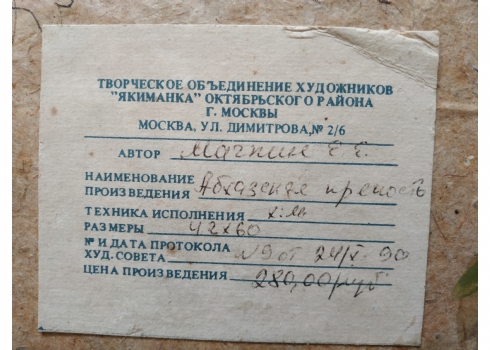 ТВОРЧЕСКОЕ ОБЪЕДИНЕНИЕ ХУДОЖНИКОВ
"ЯКИМАНКА" ОКТЯБРЬСКОГО РАЙОНА
Г. МОСКВЫ
МОСКВА, УЛ. ДИМИТРОВА, № 2/6
АВТОР Е. Е.
НАИМЕНОВАНИЕ
ПРОИЗВЕДЕНИЯ Абхазская крепость
ТЕХНИКА ИСПОЛНЕНИЯ х.м
РАЗМЕРЫ 42х60
№ И ДАТА ПРОТОКОЛА
ХУД. СОВЕТА №9 от 24/X-90
ЦЕНА ПРОИЗВЕДЕНИЯ 280,00 руб